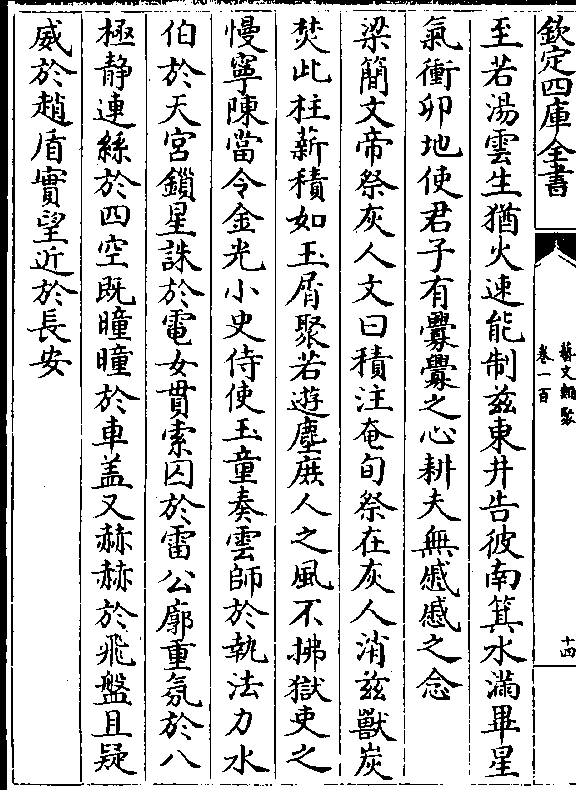 欽定四庫全書
藝文類聚
卷一百
十四
至若湯雲生猶火速能制兹東井告彼南箕水滿畢星
氣衝卯地使君子有㸑㸑之心耕夫無慼慼之念
梁簡文帝祭灰人文曰積注奄旬祭在灰人消兹獸炭
焚此柱薪積如玉屑聚若遊塵庶人之風不拂獄吏之
慢寧陳當令金光小史侍使玉童奏雲師於執法力水
伯於天宮鎖星誅於電女貫索囚於雷公廓重氛於八
極静連絲於四空既曈曈於車盖又赫赫於飛盤且疑
威於趙盾實望近於長安